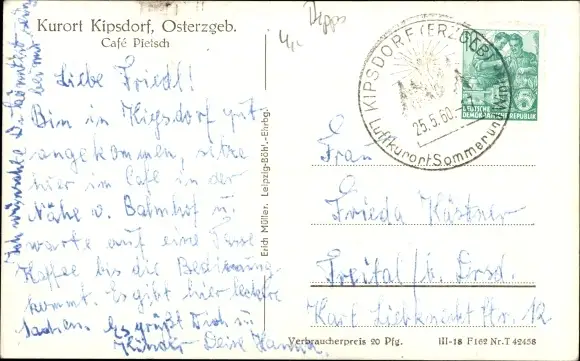 Kurort Kipsdorf, Osterzgeb.
Café Pietsch
Liebe Friedl!
Bin in Kipsdorf gut
angekommen, sitze
hier im Café in der
Nähe v. Bahnhof u.
warte auf eine Tasse
Kaffee bis die Bedienung
kommt. Es gibt hier leckere
Sachen. Es grüßt Dich u.
Kinder Deine Hanna.
Ich wünschte Du könntest
bei mir
Erich Müller, Leipzig-Böhl.-Ehrbg.
KIPSDORF (ERZGEB)
25.5.60
Luftkurort Sommer und
DEUTSCHE
DEMOKRATISCHE REPUBLIK
6
Frau
Frieda Kästner
Freital / b. Dresd.
Karl Liebknecht Str. 12
Verbraucherpreis 20 Pfg.
III-18 F 162 Nr. T 42458